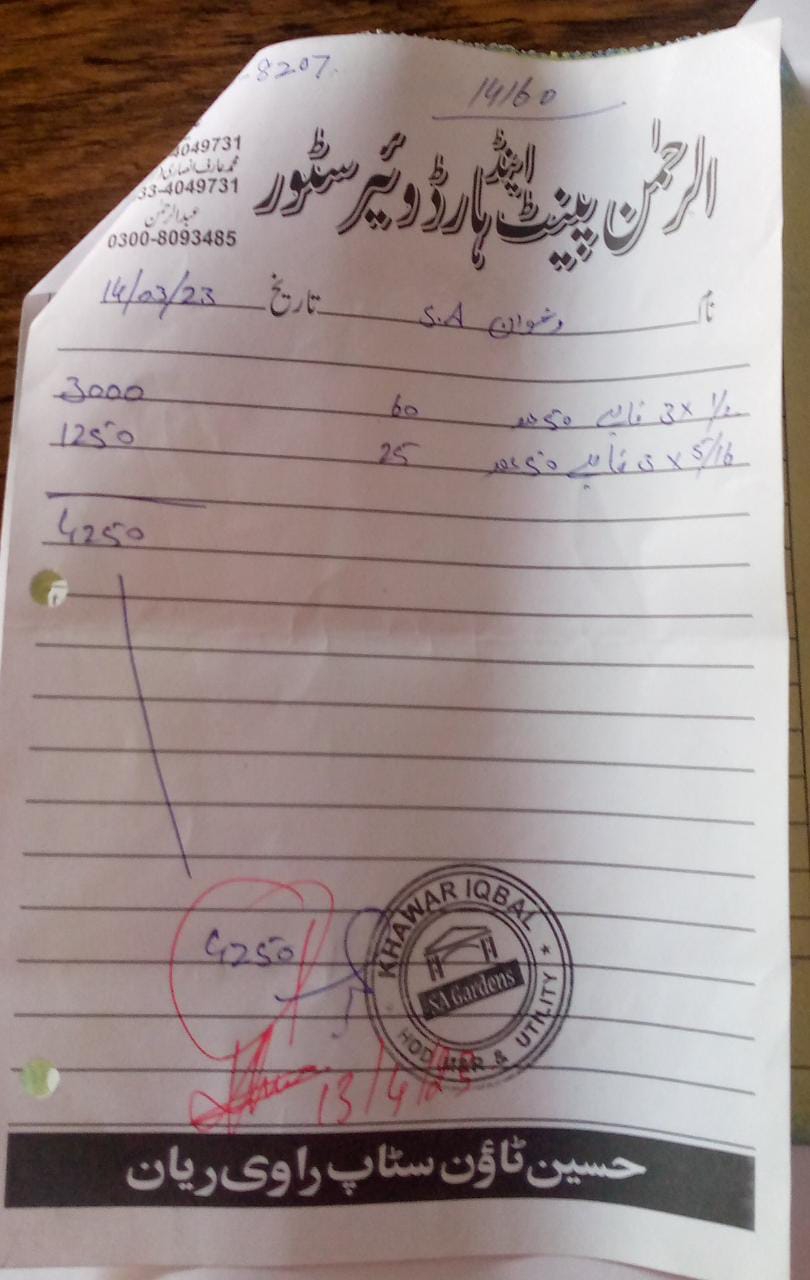 8207
14160
الرحمٰن پینٹ اینڈ ہارڈویئر سٹور
4049731
محمد عارف انصاری
33-4049731
عبدالرحمٰن
0300-8093485
نام رضوان S.A تاریخ 14/03/23
3 x 1/2 قابلے 50 عدد 60 3000
3 x 5/16 قابلے 50 عدد 25 1250
4250
4250
KHAWAR IQBAL
SA Gardens
HOD & UTILITY
13/4/23
حسین ٹاؤن سٹاپ راوی ریان